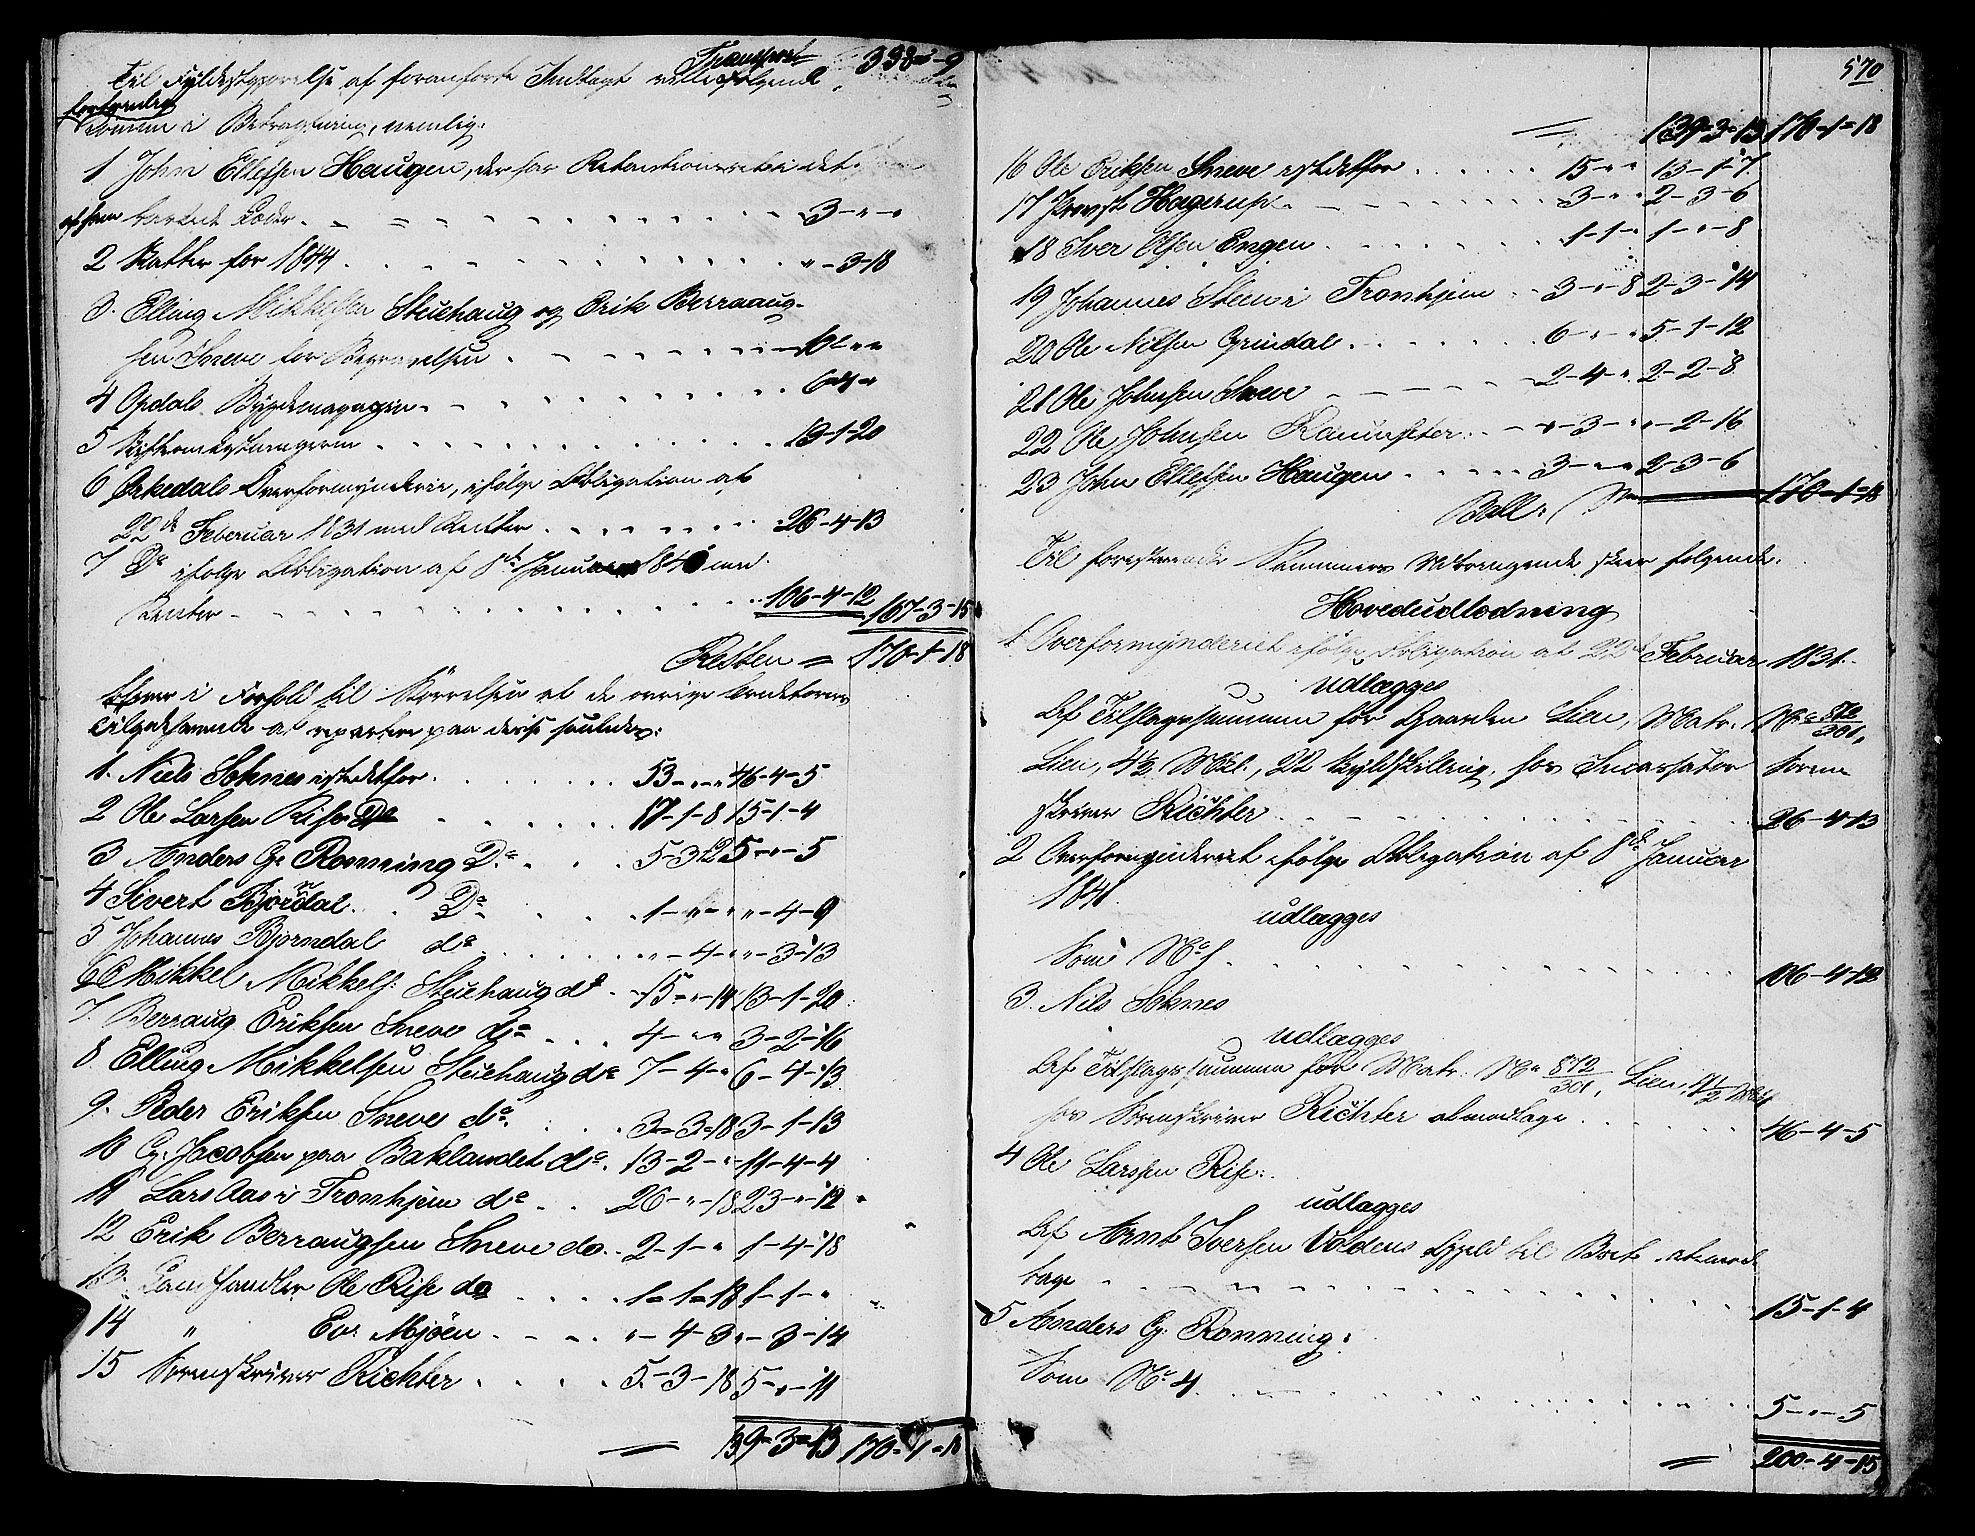 Transport 338 - " - 9
Til Fyldestgjørelse af foranførte Indtægt ville Følgende
fortrinlig
komme i Betragtning, nemlig:
1 John Ellefsen Haugen, der har Retentionsret i det
af ham barkede Læder. 3 - " - "
2 Skatter for 1844 " - 3 - 18
3. Elling Mikkelsen Stuehaug og Erik Berraaug-
sen Sneve for Begravelsen 10 - " - "
4 Opdals Bygdemagazin 6 - 4 - "
5 Skiftomkostningerne 13 - 1 - 20
6 Orkedals Overformynderie, ifølge Obligation af
22de Februar 1831 med Renter 26 - 4 - 13
7 Do ifølge Obligation af 8de Januar 1841 med
Renter 106 - 4 - 12 167 - 3 - 15
Resten = 170 - 1 - 18
bliver i Forhold til Størrelsen af de øvrige Creditorers
Tilgodehavende at repartere paa disse saaledes:
1. Niels Soknes istedetfor 53 - " - " 46 - 4 - 5
2 Ole Larsen Rise Do 17 - 1 - 8 15 - 1 - 4
3 Anders G. Rønning Do 5 - 3 - 12 5 - " - 5
4 Sivert Bjørndal Do 1 - " - " " - 4 - 9
5 Johannes Bjørndal do " - 4 - " " - 3 - 13
6 Mikkel Mikkels: Stuehaug do 15 - " - 14 13 - 1 - 20
7. Berraug Eriksen Sneve do 4 - " - " 3 - 2 - 16
8. Elling Mikkelsen Stuehaug do 7 - 4 - " 6 - 4 - 13
9. Peder Eriksen Sneve do 3 - 3 - 18 3 - 1 - 13
10 G. Jacobsen paa Baklandet do 13 - 2 - " 11 - 4 - 4
11 Lars Aas i Tronhjem do 26 - " - 18 23 - " - 12
12 Erik Berraugsen Sneve do 2 - 1 - " 1 - 4 - 18
13 Landhandler Ole Rise do 1 - 1 - 18 1 - 1 - "
14 " Ev. Mjöen " - 4 - 3 " - 3 - 14
15 Sorenskriver Richter 5 - 3 - 18 5 - " - 11
= 139 - 3 - 13 170 - 1 - 18
570
= 139 - 3 - 13 170 - 1 - 18
16 Ole Eriksen Sneve istedetfor 15 - " - " 13 - 1 - 7
17 Provst Hagerup 3 - " - " 2 - 3 - 6
18 Iver Olsen Engen 1 - 1 - " 1 - " - 8
19 Johannes Steen i Tronhjem 3 - " - 8 2 - 3 - 14
20 Ole Nilsen Grindal 6 - " - " 5 - 1 - 12
21 Ole Johnsen Sneve 2 - 4 - " 2 - 2 - 8
22 Ole Johnsen " - 3 - " " - 2 - 16
23 John Ellefsen Haugen 3 - " - " 2 - 3 - 6
Ball: 170 - 1 - 18
Til forestaaende Summers Udbringende skeer følgende
Hovedudlodning
1 Overformynderiet ifølge Obligation af 22de Februar 1831.
udlægges
Af Tilslagssummen for Gaarden Lien, Matr. No 872/301,
Lien, 4½ Mkl., 22 Skyldskilling, hos Incassator Soren
skriver Richter 26 - 4 - 13
2 Overformynderiet ifølge Obligation af 8de Januar
1841.
udlægges
Som No 1 106 - 4 - 12
3. Nils Soknes
udlægges
Af Tilslagssummen for Matr. No 872/301, Lien,
hos Sorenskriver Richter at modtage 46 - 4 - 5
4 Ole Larsen Rise:
udlægges
Af Arnt Iversen Voldens Gjeld til Boet at mod
tage 15 - 1 - 4
5 Anders G. Rønning:
Som No 4 5 - " - 5
= 200 - 4 - 15